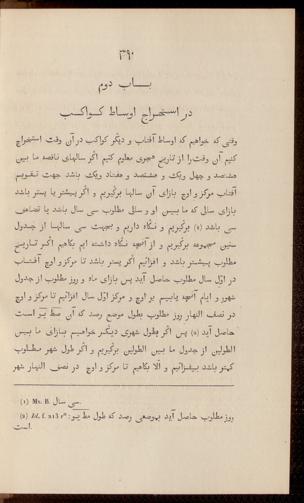 ۳۹۰
بـــاب دوم
در استخراج اوساط كـواكـب
وقتى كه خواهيم كه اوساط آفتاب و ديگر كواكب در آن وقت استخراج
كنيم آن وقت را از تاريخ هجرى معلوم كنيم اگر سالهاى ناقصه ما بين
هشتصد و چهل ويك و هشتصد و هفتاد ويك باشد جهت تـقـويـم
آفتاب مركز و اوج بازاى آن سالها برگيريم و اگر پيشتر يا پستر باشد
بازاى سالى كه ما بـيـن او و سالى مطلوب سى سال باشد يا تضاعف
سى باشد (1) برگيريم و نگاه داريم و بجهت سى سالهـا از جدول
سنين مجموعه برگيريم و از آنچه نگاه داشته ايم بكاهيم اگـر تـاريـخ
مطلوب پيـشـتر باشد و افزائيم اگر پستر باشد تا مركز و اوج آفتـاب
در اوّل سال مطلوب حاصل آيد پس بازاى ماه و روز مطلوب از جدول
شهور و ايام آنچه يابيـم بر اوج و مركز اوّل سال افزائيم تا مركز و اوج
در نصف النهار روز مطلوب بطول موضع رصد كه آن است
حاصل آيد (2) پس اگر بطول شهرى ديـگـر خواهـيـم بـازاى ما بـيـن
الطولين از جدول ما بين الطولين برگيريم و اگر طول شهر مطـلـوب
كمتر باشد بيـفـزائيم و الّا بكاهيم تا مركز و اوج در نصف النهار شهر
(1) Ms. B. سى سال.
(2) Id. f. 213 rº: روز مطلوب حاصل آيد بموضعى رصد كه طول
است.